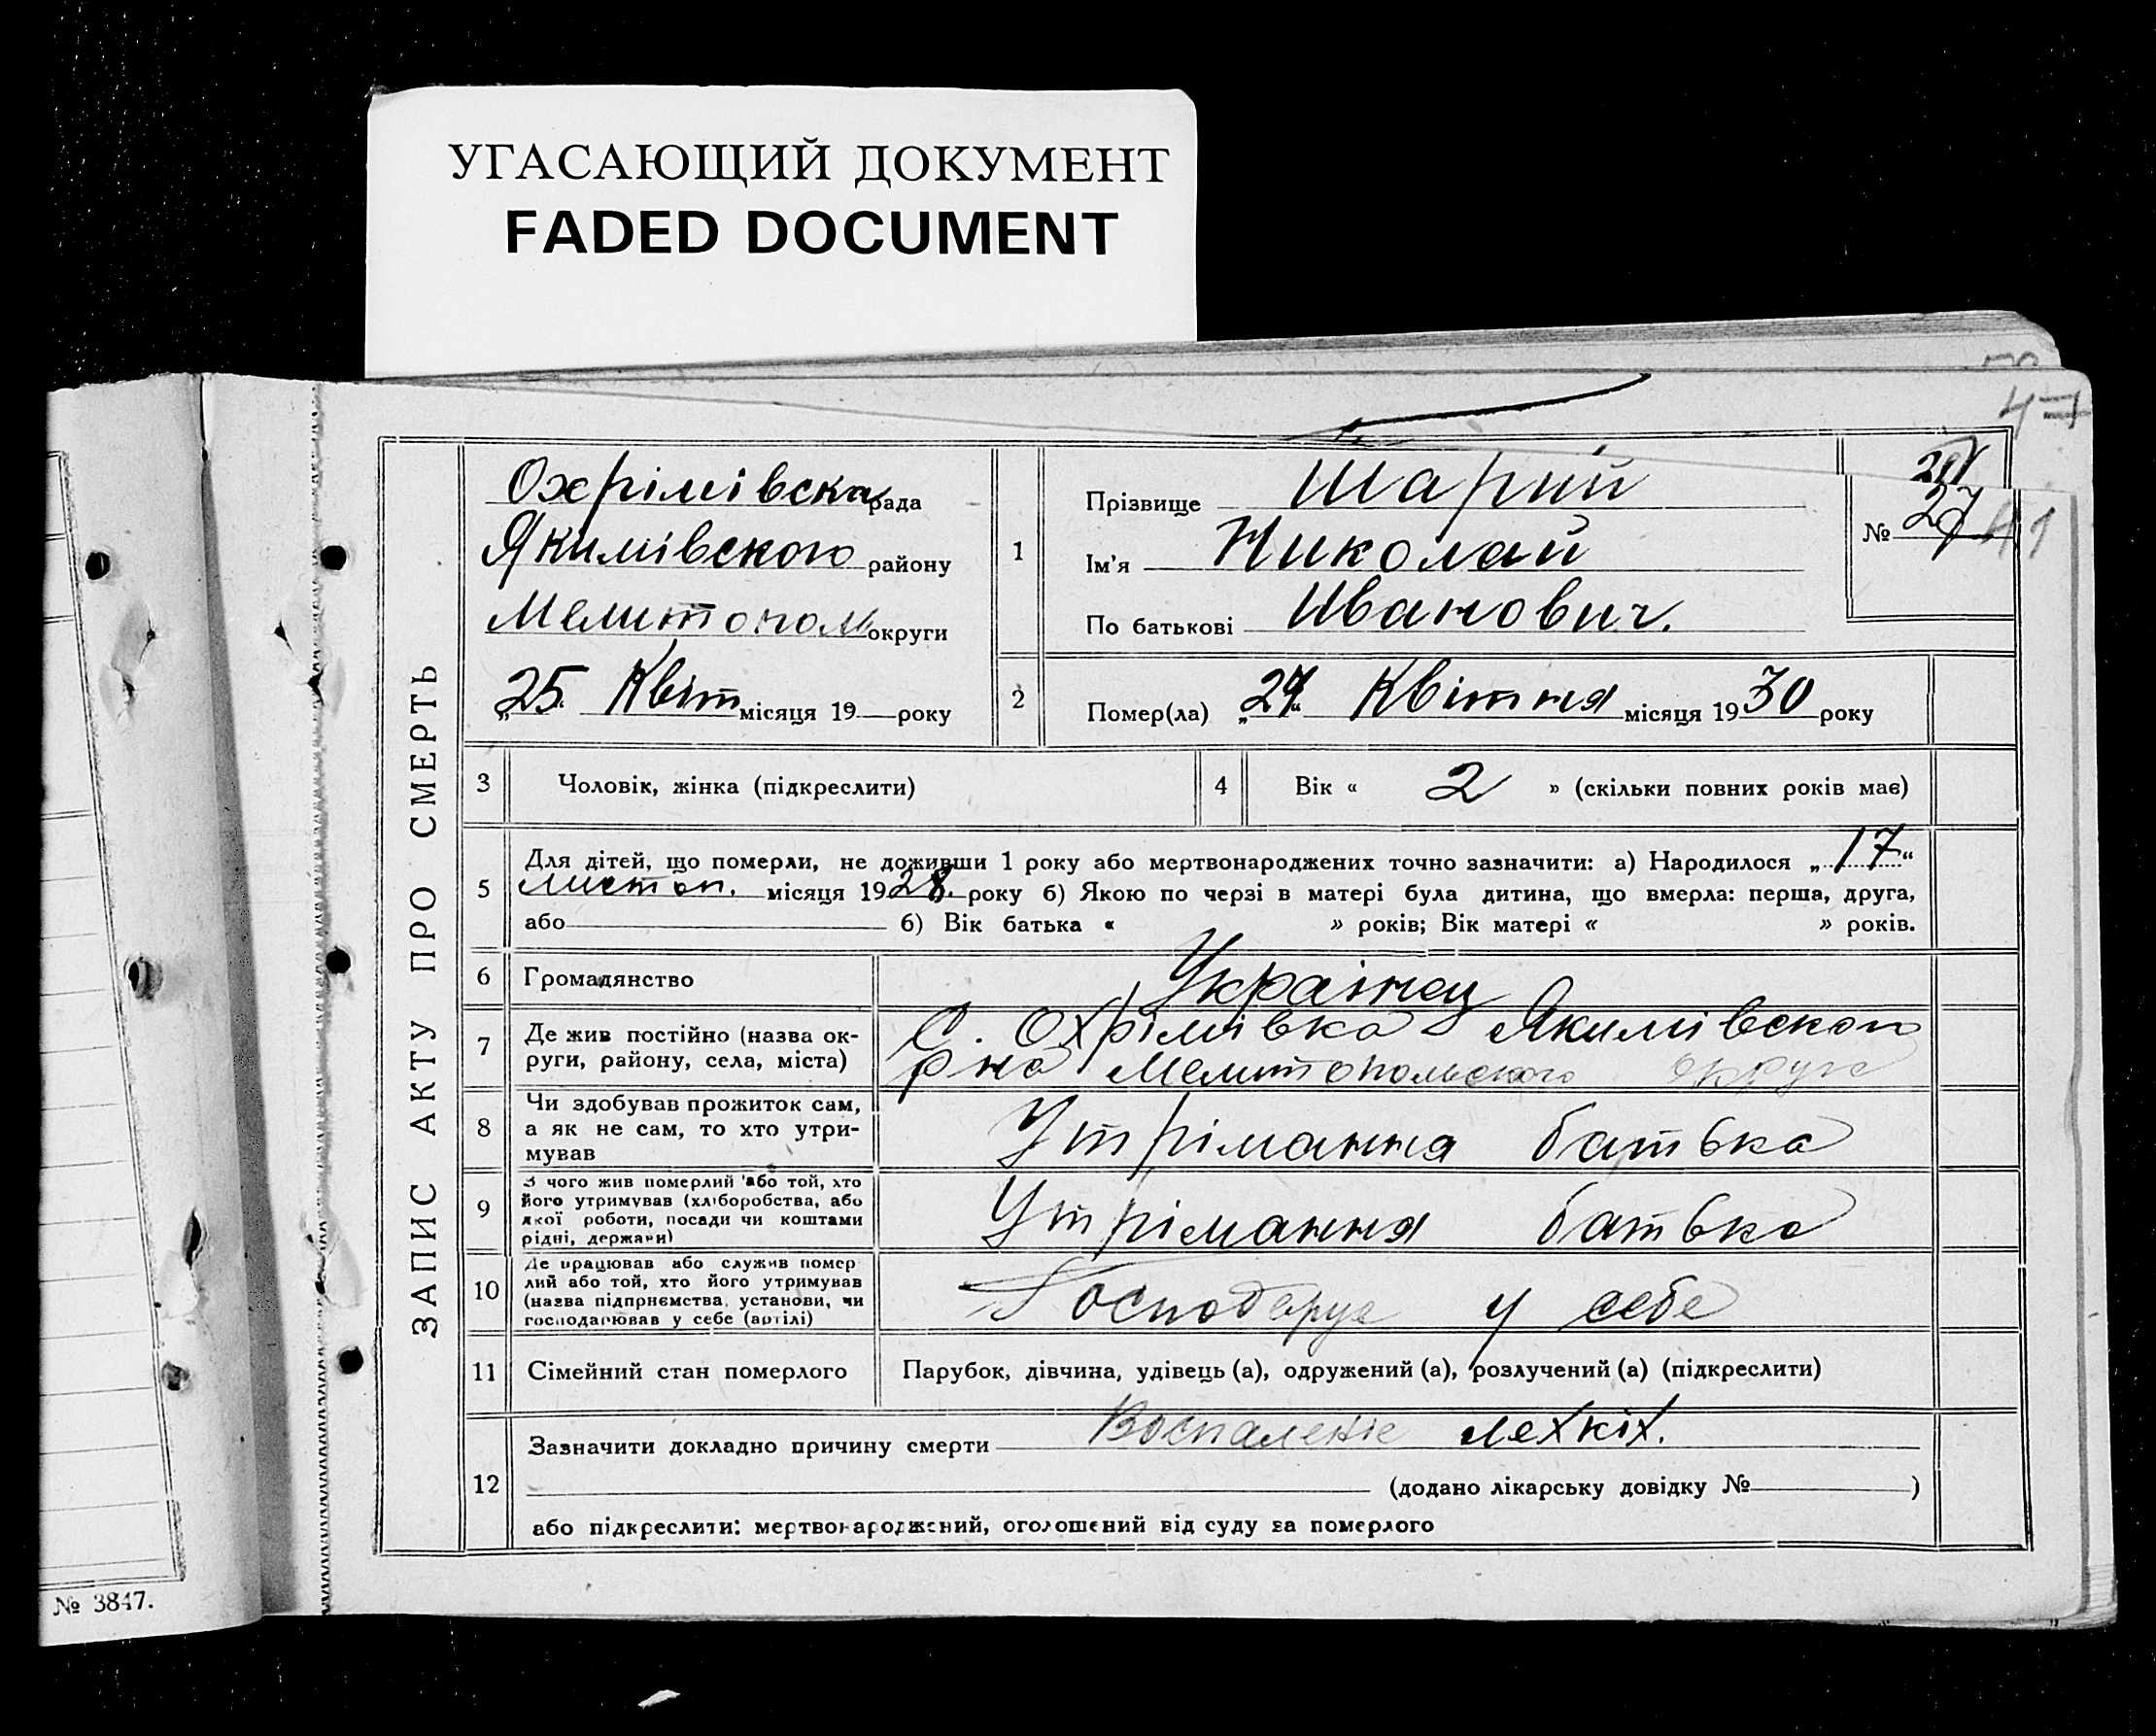 УГАСАЮЩИЙ ДОКУМЕНТ
FADED DOCUMENT
47
ЗАПИС АКТУ ПРО СМЕРТЬ
Охрімівска рада
Якимівского району
Мелитопол округи
„25. Квіт місяця 19 — року
1
Прізвище Шарий
Ім'я Николай
По батькові Иванович.
№ 27
41
2
Помер(ла) „24“ Квітня місяця 1930 року
3 Чоловік, жінка (підкреслити)
4 Вік « 2 » (скільки повних років має)
5
Для дітей, що померли, не доживши 1 року або мертвонароджених точно зазначити: а) Народилося „17“
листоп. місяця 1928. року б) Якою по черзі в матері була дитина, що вмерла: перша, друга,
або б) Вік батька « » років; Вік матері « » років.
6 Громадянство Українец
7
Де жив постійно (назва ок-
руги, району, села, міста)
С. Охрімівка Якимівского
рна Мелитопольского округа
8
Чи здобував прожиток сам,
а як не сам, то хто утри-
мував
Утрімання батька
9
З чого жив померлий або той, хто
його утримував (хліборобства, або
якої роботи, посади чи коштами
рідні, держави)
Утрімання батька
10
Де працював або служив помер
лий або той, хто його утримував
(назва підприємства, установи, чи
господарював у себе (артілі)
Господарує у себе
11 Сімейний стан померлого Парубок, дівчина, удівець (а), одружений (а), розлучений (а) (підкреслити)
12
Зазначити докладно причину смерти Воспаленіе лехкіх.
(додано лікарську довідку № )
або підкреслити: мертвонароджений, оголошений від суду за померлого
№ 3847.